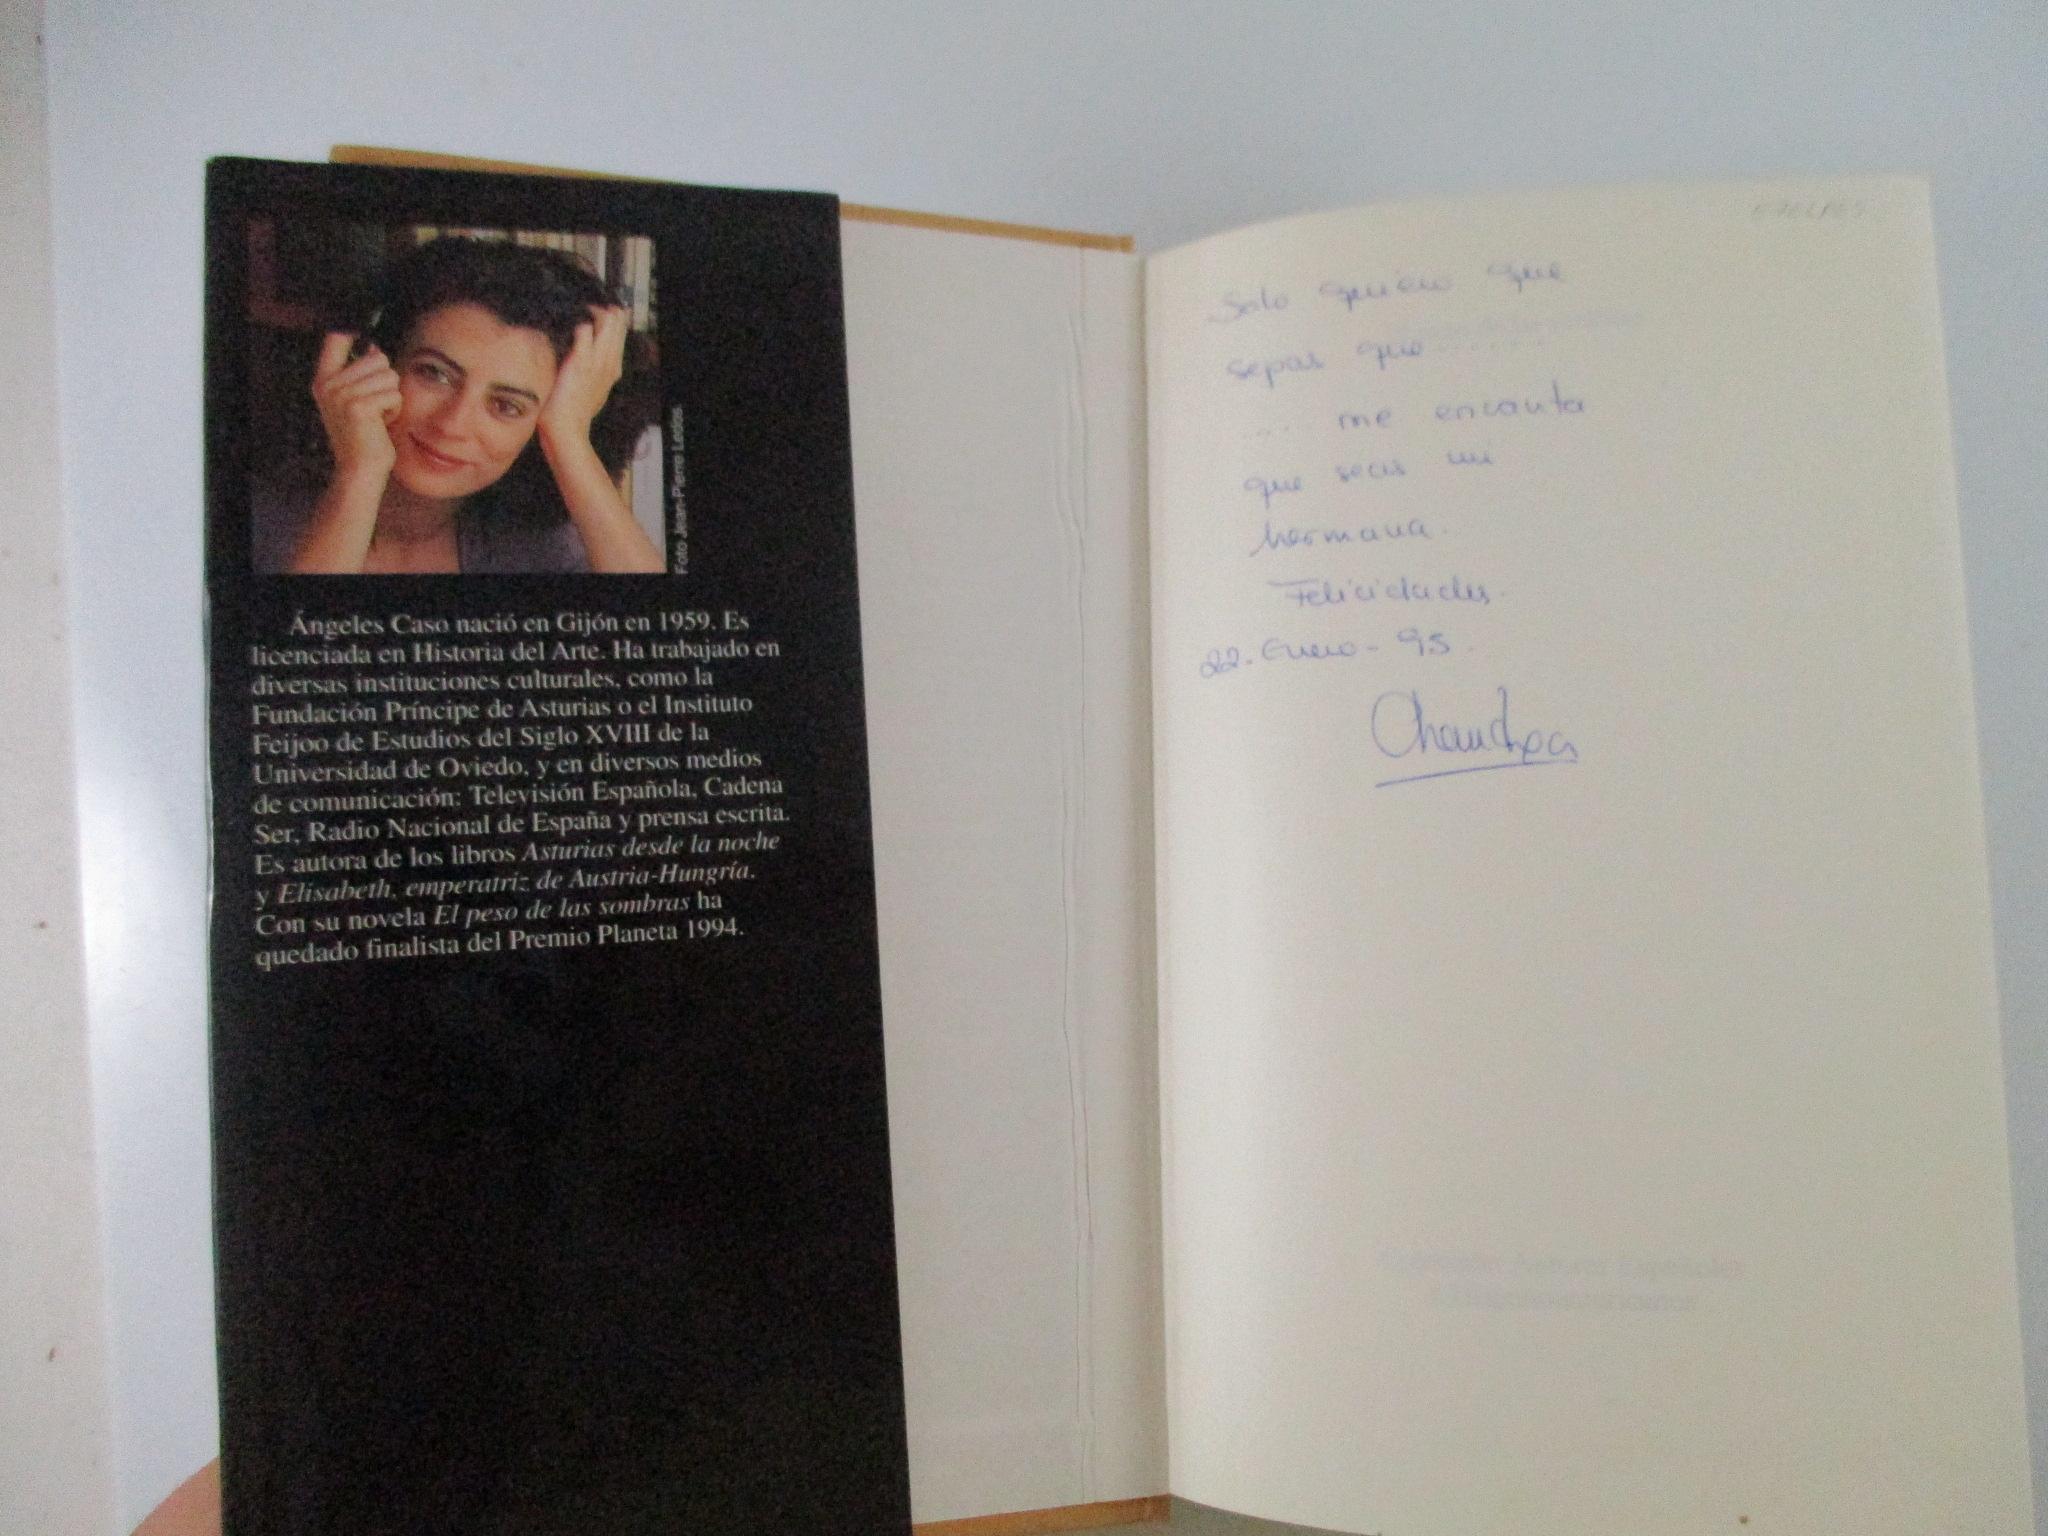 Foto Jean-Pierre Ledos
Ángeles Caso nació en Gijón en 1959. Es
licenciada en Historia del Arte. Ha trabajado en
diversas instituciones culturales, como la
Fundación Príncipe de Asturias o el Instituto
Feijoo de Estudios del Siglo XVIII de la
Universidad de Oviedo, y en diversos medios
de comunicación: Televisión Española, Cadena
Ser, Radio Nacional de España y prensa escrita.
Es autora de los libros Asturias desde la noche
y Elisabeth, emperatriz de Austria-Hungría.
Con su novela El peso de las sombras ha
quedado finalista del Premio Planeta 1994.
Solo quiero que
sepas que .......
.... me encanta
que seas mi
hermana.
Felicidades.
22. Enero - 95.